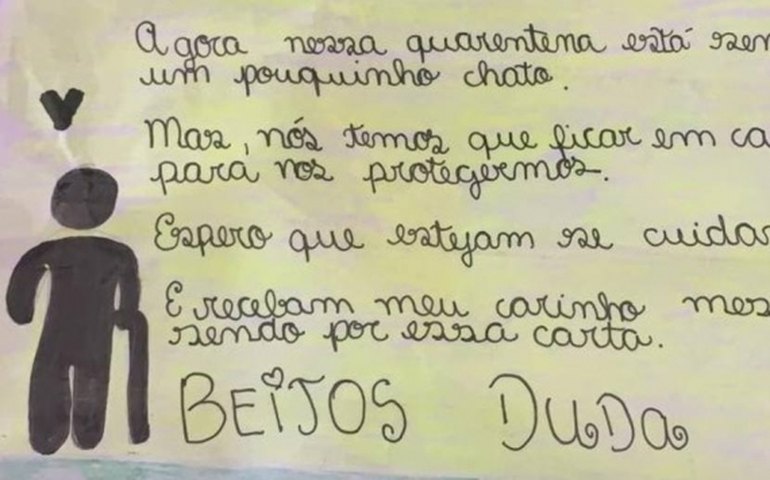 Agora nossa quarentena está sen
um pouquinho chato.
Mas, nós temos que ficar em ca
para nos protegermos.
Espero que estejam se cuida
E recebam meu carinho mes
sendo por essa carta.
BEiJOS DUDa